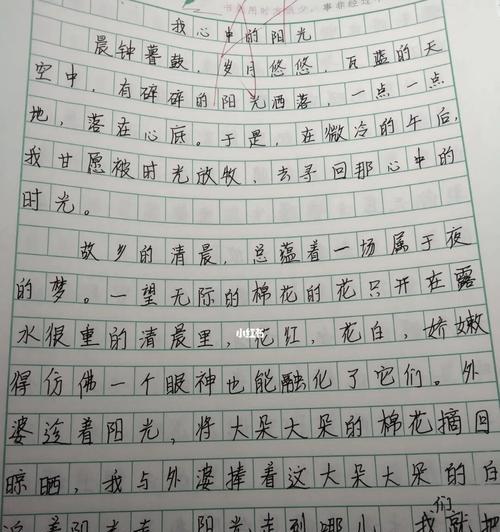 书到用时方恨少，事非经过
我心中的阳光
晨钟暮鼓，岁月悠悠，瓦蓝的天
空中，有碎碎的阳光洒落，一点一点
地，落在心底。于是，在微冷的午后，
我甘愿被时光放牧，去寻回那心中的
时光。
故乡的清晨，总蕴着一场属于夜
的梦。一望无际的棉花的花只开在露
水很重的清晨里，花红，花白，娇嫩
小红书
得仿佛一个眼神也能融化了它们。外
婆迨着阳光，将大朵大朵的棉花摘回
晾晒，我与外婆捧着这大朵大朵的白
们
着阳光走，阳光走到哪儿，我就把